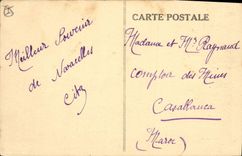 CARTE POSTALE
Meilleur Souvenir
de Navacelles
Madame et Mr Raynaud
comptoir des Mines
Casablanca
(Maroc)